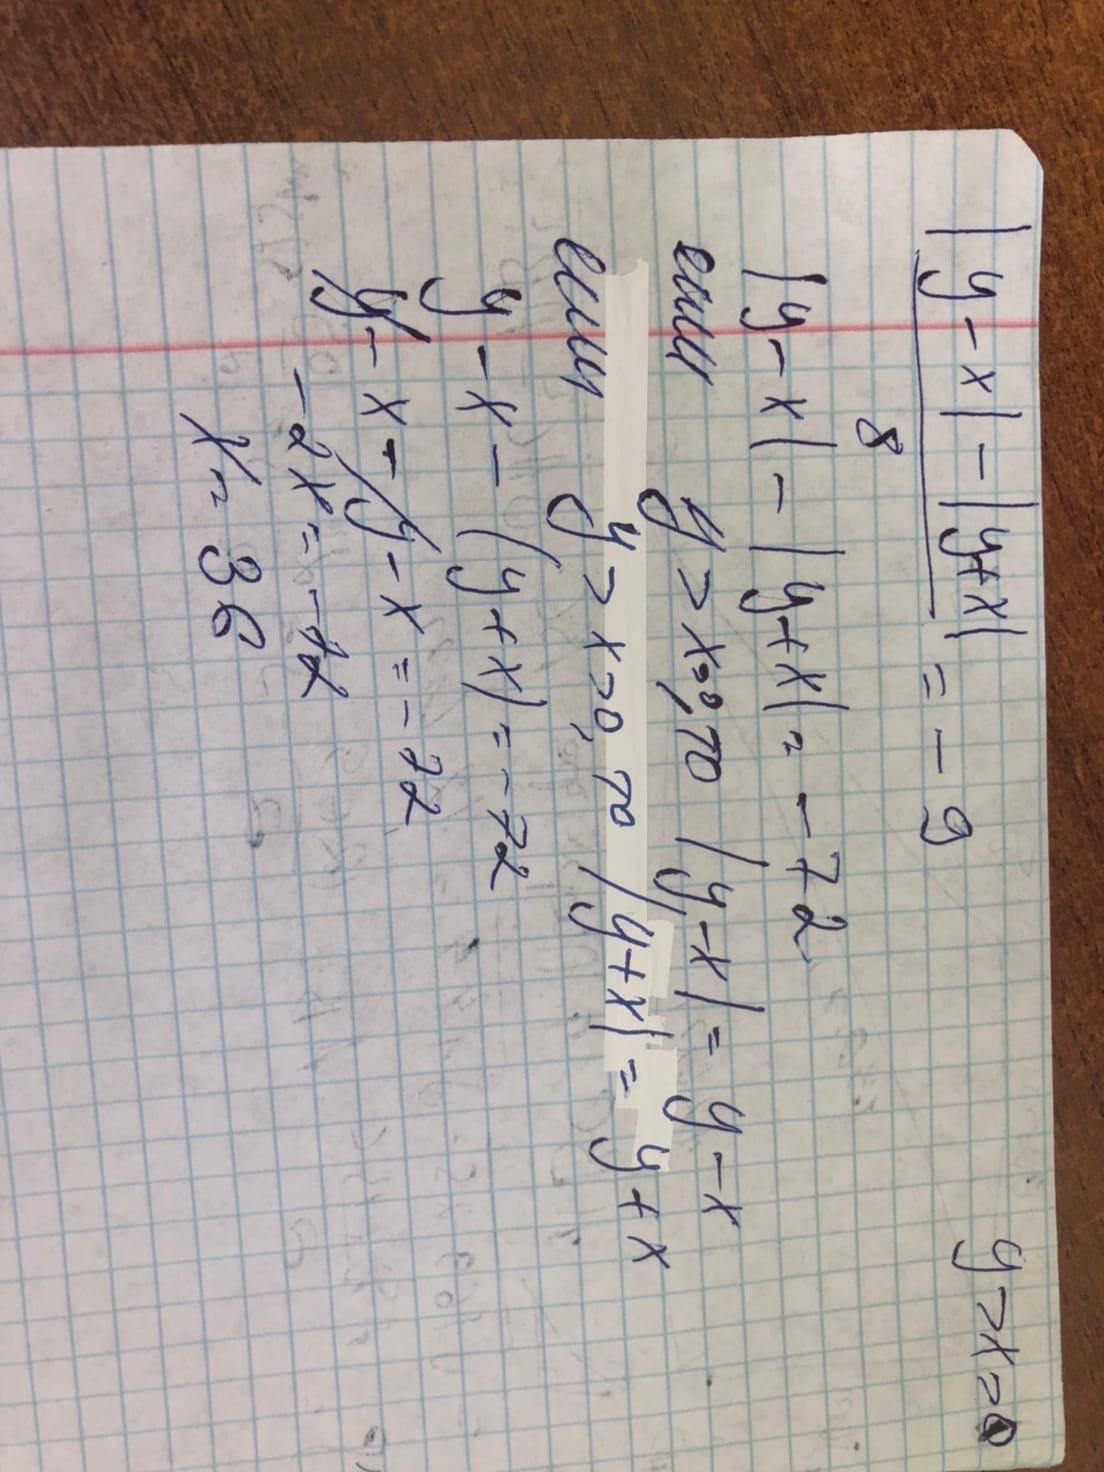 |y-x| - |y+x| / 8 = -9      y > x > 0
|y-x| - |y+x| = -72
если y > x > 0, то |y-x| = y-x
если y > x > 0, то |y+x| = y+x
y - x - (y+x) = -72
y - x - y - x = -72
-2x = -72
x = 36